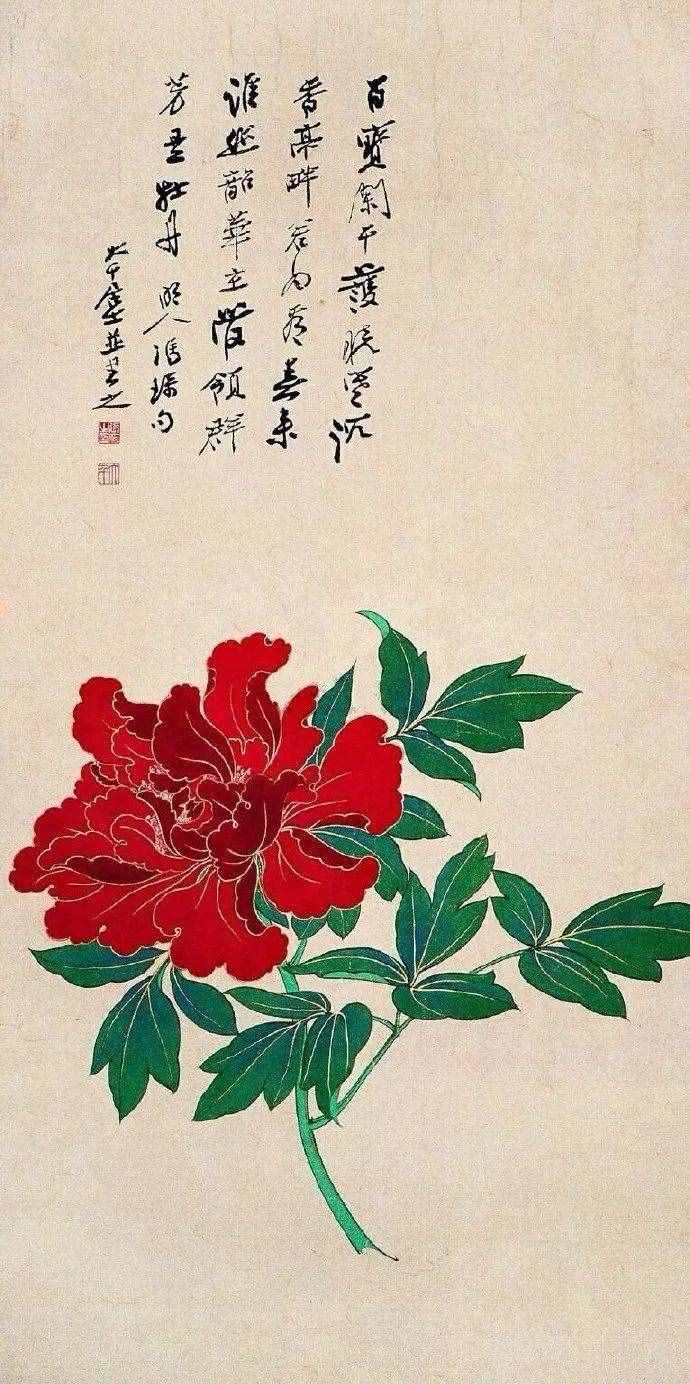 百寶闌干護曉寒沉
香亭畔若為看春來
誰韶華主管領群
芳是牡丹 明人馮句
大千爰並書之